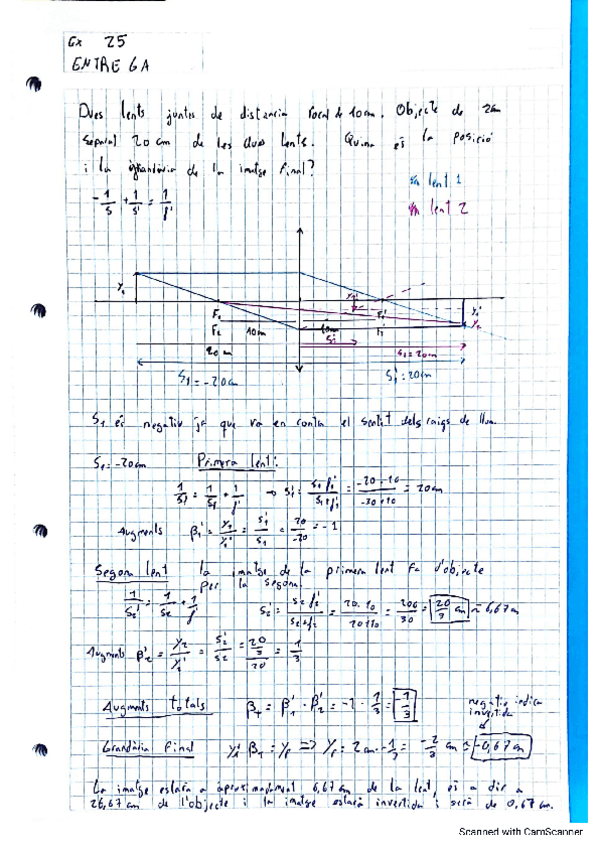 Ex 25
ENTREGA
Dues lents juntes de distancia focal de 10cm. Objecte de 2cm
separat 20 cm de les dues lents. Quina és la posició
i la grandària de la imatge final?
-1/s + 1/s' = 1/f'
lent 1
lent 2
F₂ 10cm
20 cm
S₁ = -20cm
S₁' = 20cm
S₂ = 20cm
S₁ és negativ ja que va en contra el sentit dels raigs de llum.
S₁ = -20cm Primera lent:
1/S₁' = 1/S₁ + 1/f' → S₁' = S₁f₁'/S₁+f₁' = -20·10/-20+10 = 20cm
Augments β₁' = y₁/y₁' = S₁'/S₁ = 20/-20 = -1
Segona lent la imatge de la primera lent fa d'objecte
per la segona.
1/S₂' = 1/S₂ + 1/f' S₂' = S₂f₂'/S₂+f₂' = 20·10/20+10 = 200/30 = 20/3 cm ≈ 6,67cm
Augments β'₂ = y₂/y₂' = S₂'/S₂ = 20/3/20 = 1/3
Augments totals βT = β₁' · β₂' = -1 · 1/3 = -1/3
negativ indica
invertida
Grandària final βT = yF ⟹ yF = 2cm · -1/3 = -2/3 cm ≈ -0,67cm
La imatge estarà a aproximadament 6,67 cm de la lent, és a dir a
26,67 cm de l'objecte i la imatge estarà invertida i serà de 0,67cm.
Scanned with CamScanner